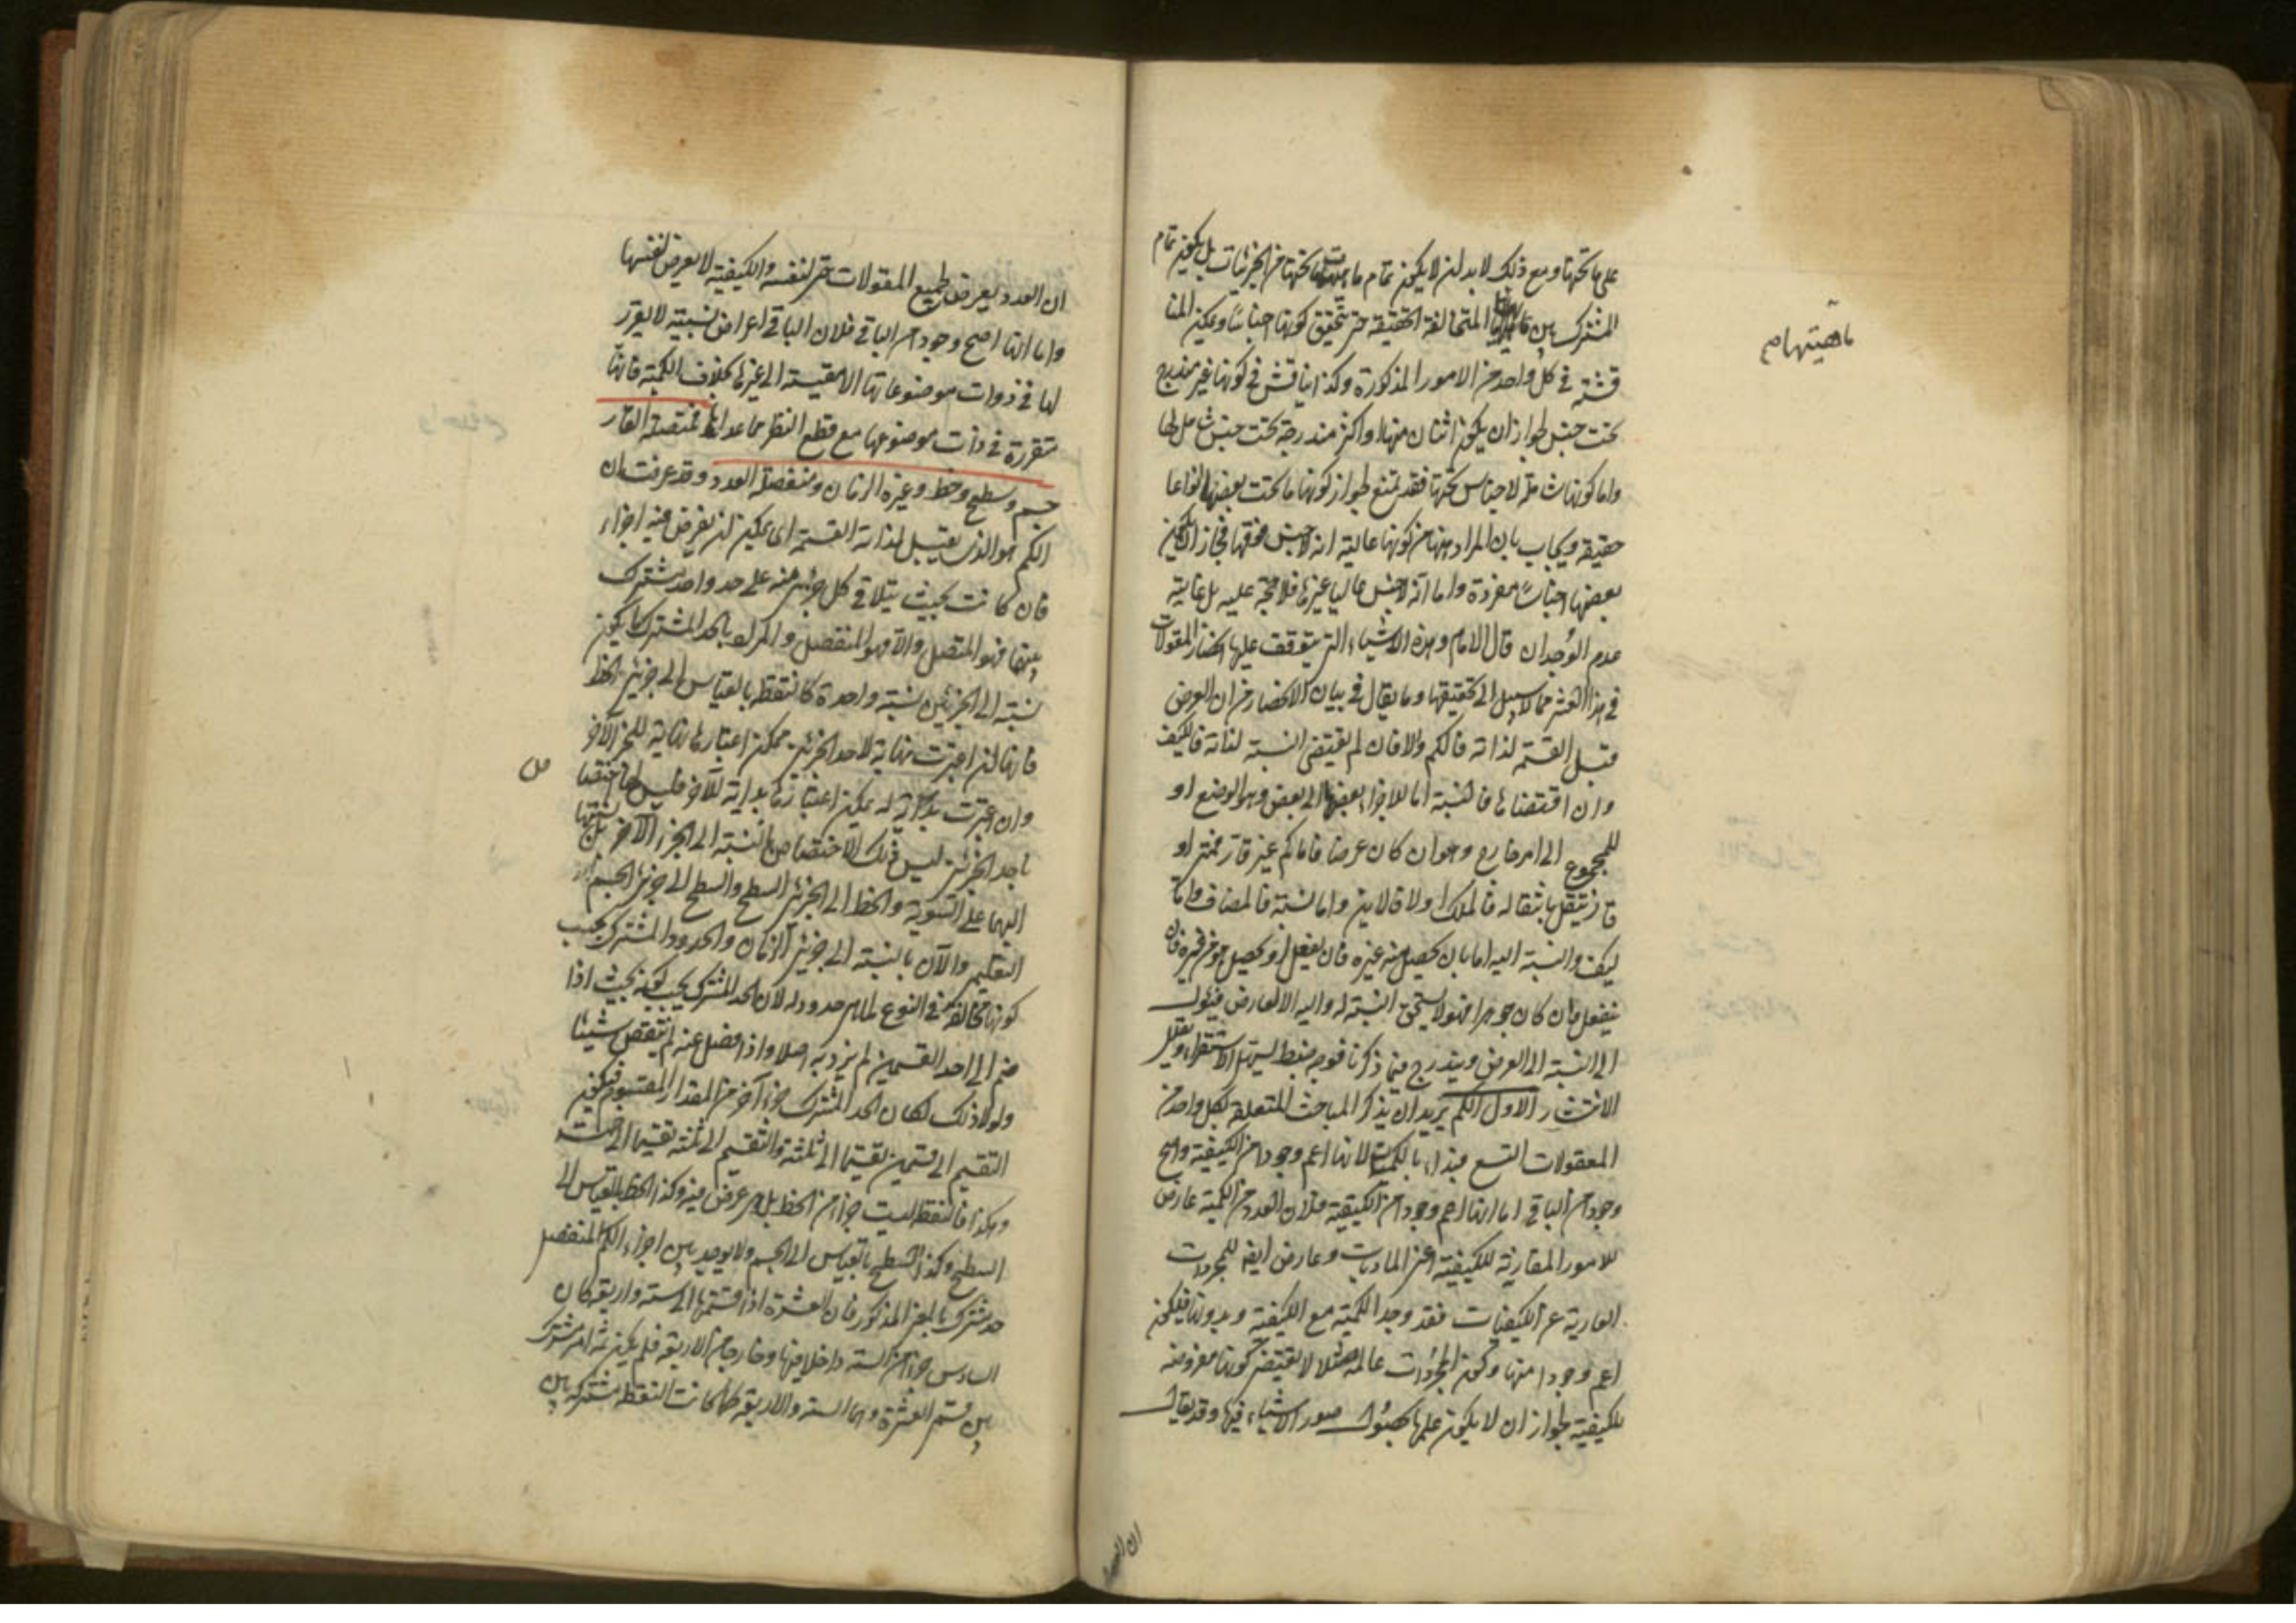 على ما تحتها ومع ذلك لا بد ان لا يكون تمام ماهيات ما تحتها من الجزئيات بل يكون تمام
المشترك بين المتخالفة الحقيقة حتى يتحقق كونها اجناسا ويمكن المنا
قشة في كل واحد من الامور المذكورة وكذا يناقش في كونها غير مندرج
تحت جنس لجواز ان يكون اثنان منها او اكثر مندرجة تحت جنس شامل لها
واما كونها شاملة لاجناس تحتها فقد يمنع لجواز كونها ما تحت بعضها انواعا
حقيقة ويجاب بان المراد ههنا من كونها عالية انه لا جنس فوقها فجاز ان يكون
بعضها اجناسا مفردة واما انه لا جنس عاليا غيرها فلا حجة عليه بل غايته
عدم الوجدان قال الامام وهذه الاشياء التي يتوقف عليها انحصار المقولات
في هذا العشر مما لا سبيل الى تحقيقها وما يقال في بيان الانحصار من ان العرض
ان قبل القسمة لذاته فالكم والا فان لم يقتض النسبة لذاته فالكيف
وان اقتضاها فالنسبة اما للاجزاء بعضها الى بعض وهو الوضع او
للمجموع الى امر خارج وهو ان كان عرضا فاما كم غير قار فمتى او
قار ينتقل بانتقاله فالملك او لا فالاين واما نسبة فالمضاف واما
كيف والنسبة اليه اما بان يحصل منه غيره فان يفعل او يحصل هو من غيره فان
ينفعل وان كان جوهرا فهو لا يستحق النسبة له واليه الا لعارض فيئول
الى النسبة الى العرض ويندرج فيما ذكرنا فوجه ضبط يسهل الاستقراء ويقلل
الانتشار الاول الكم يريد ان يذكر المباحث المتعلقة بكل واحد من
المقولات التسع فبدأ بالكمية لانها اعم وجودا من الكيفية واصح
وجودا من الباقي اما انها اعم وجودا من الكيفية فلان العدد من الكمية عارض
للامور المقارنة للكيفية اعنى الماديات وعارض ايضا للمجردات
العارية عن الكيفيات فقد وجد الكمية مع الكيفية وبدونها فيكون
اعم وجودا منها وكون المجردات عالمة مثلا لا يقتضى كونها معروضة
للكيفية لجواز ان لا يكون علمها بحصول صور الاشياء فيها وقد يقال
ماهيتها مح
ان العدد
ان العدد يعرض لجميع المقولات حتى لنفسه والكيفية لا يعرض لنفسها
واما انها اصح وجودا من الباقي فلان الباقي اعراض نسبية لا يقرر
لها في ذوات موضوعاتها الا مقيسة الى غيرها بخلاف الكمية فانها
متقررة في ذات موضوعها مع قطع النظر عما عداها فمتصلة القار
جسم وسطح وخط وغيره الزمان ومنفصلة العدد وقد عرفت ان
الكم هو الذي يقبل لذاته القسمة اى يمكن ان يفرض فيه اجزاء
فان كانت بحيث يتلاقى كل جزئين منه على حد واحد مشترك
بينهما فهو المتصل والا فهو المنفصل والمراد بالحد المشترك ما يكون
نسبته الى الجزئين نسبة واحدة كالنقطة بالقياس الى جزئى الخط
فانها ان اعتبرت نهاية لاحد الجزئين يمكن اعتبارها نهاية للجزء الآخر
وان اعتبرت بداية له يمكن اعتبارها بداية للآخر فليس لها اختصا
ص
باحد الجزئين ليس ذلك الاختصاص بالنسبة الى الجزء الآخر بل نسبتها
اليهما على السوية والخط الى جزئى السطح والسطح الى جزئى الجسم
التعليمى والآن بالنسبة الى جزئى الزمان والحدود المشتركة يجب
كونها مخالفة في النوع لما هي حدود له لان الحد المشترك يجب كونه بحيث اذا
ضم الى احد القسمين لم يزد به اصلا واذا فصل عنه لم ينتقص شيئا
ولولا ذلك لكان الحد المشترك جزءا آخر من المقدار المقسوم فيكون
التقسيم الى قسمين تقسيما الى ثلثة والتقسيم الى ثلثة تقسيما الى خمسة
وهكذا فالنقطة ليست جزءا من الخط بل هي عرض فيه وكذا الخط بالقياس الى
السطح وكذا السطح بالقياس الى الجسم ولا يوجد بين اجزاء الكم المنفصل
حد مشترك بالمعنى المذكور فان العشرة اذا قسمتها الى ستة واربعة كان
السادس جزءا من الستة داخلا فيها وخارجا من الاربعة فلم يكن ثمة امر مشترك
بين قسمى العشرة وهما الستة والاربعة كما كانت النقطة مشتركة بين